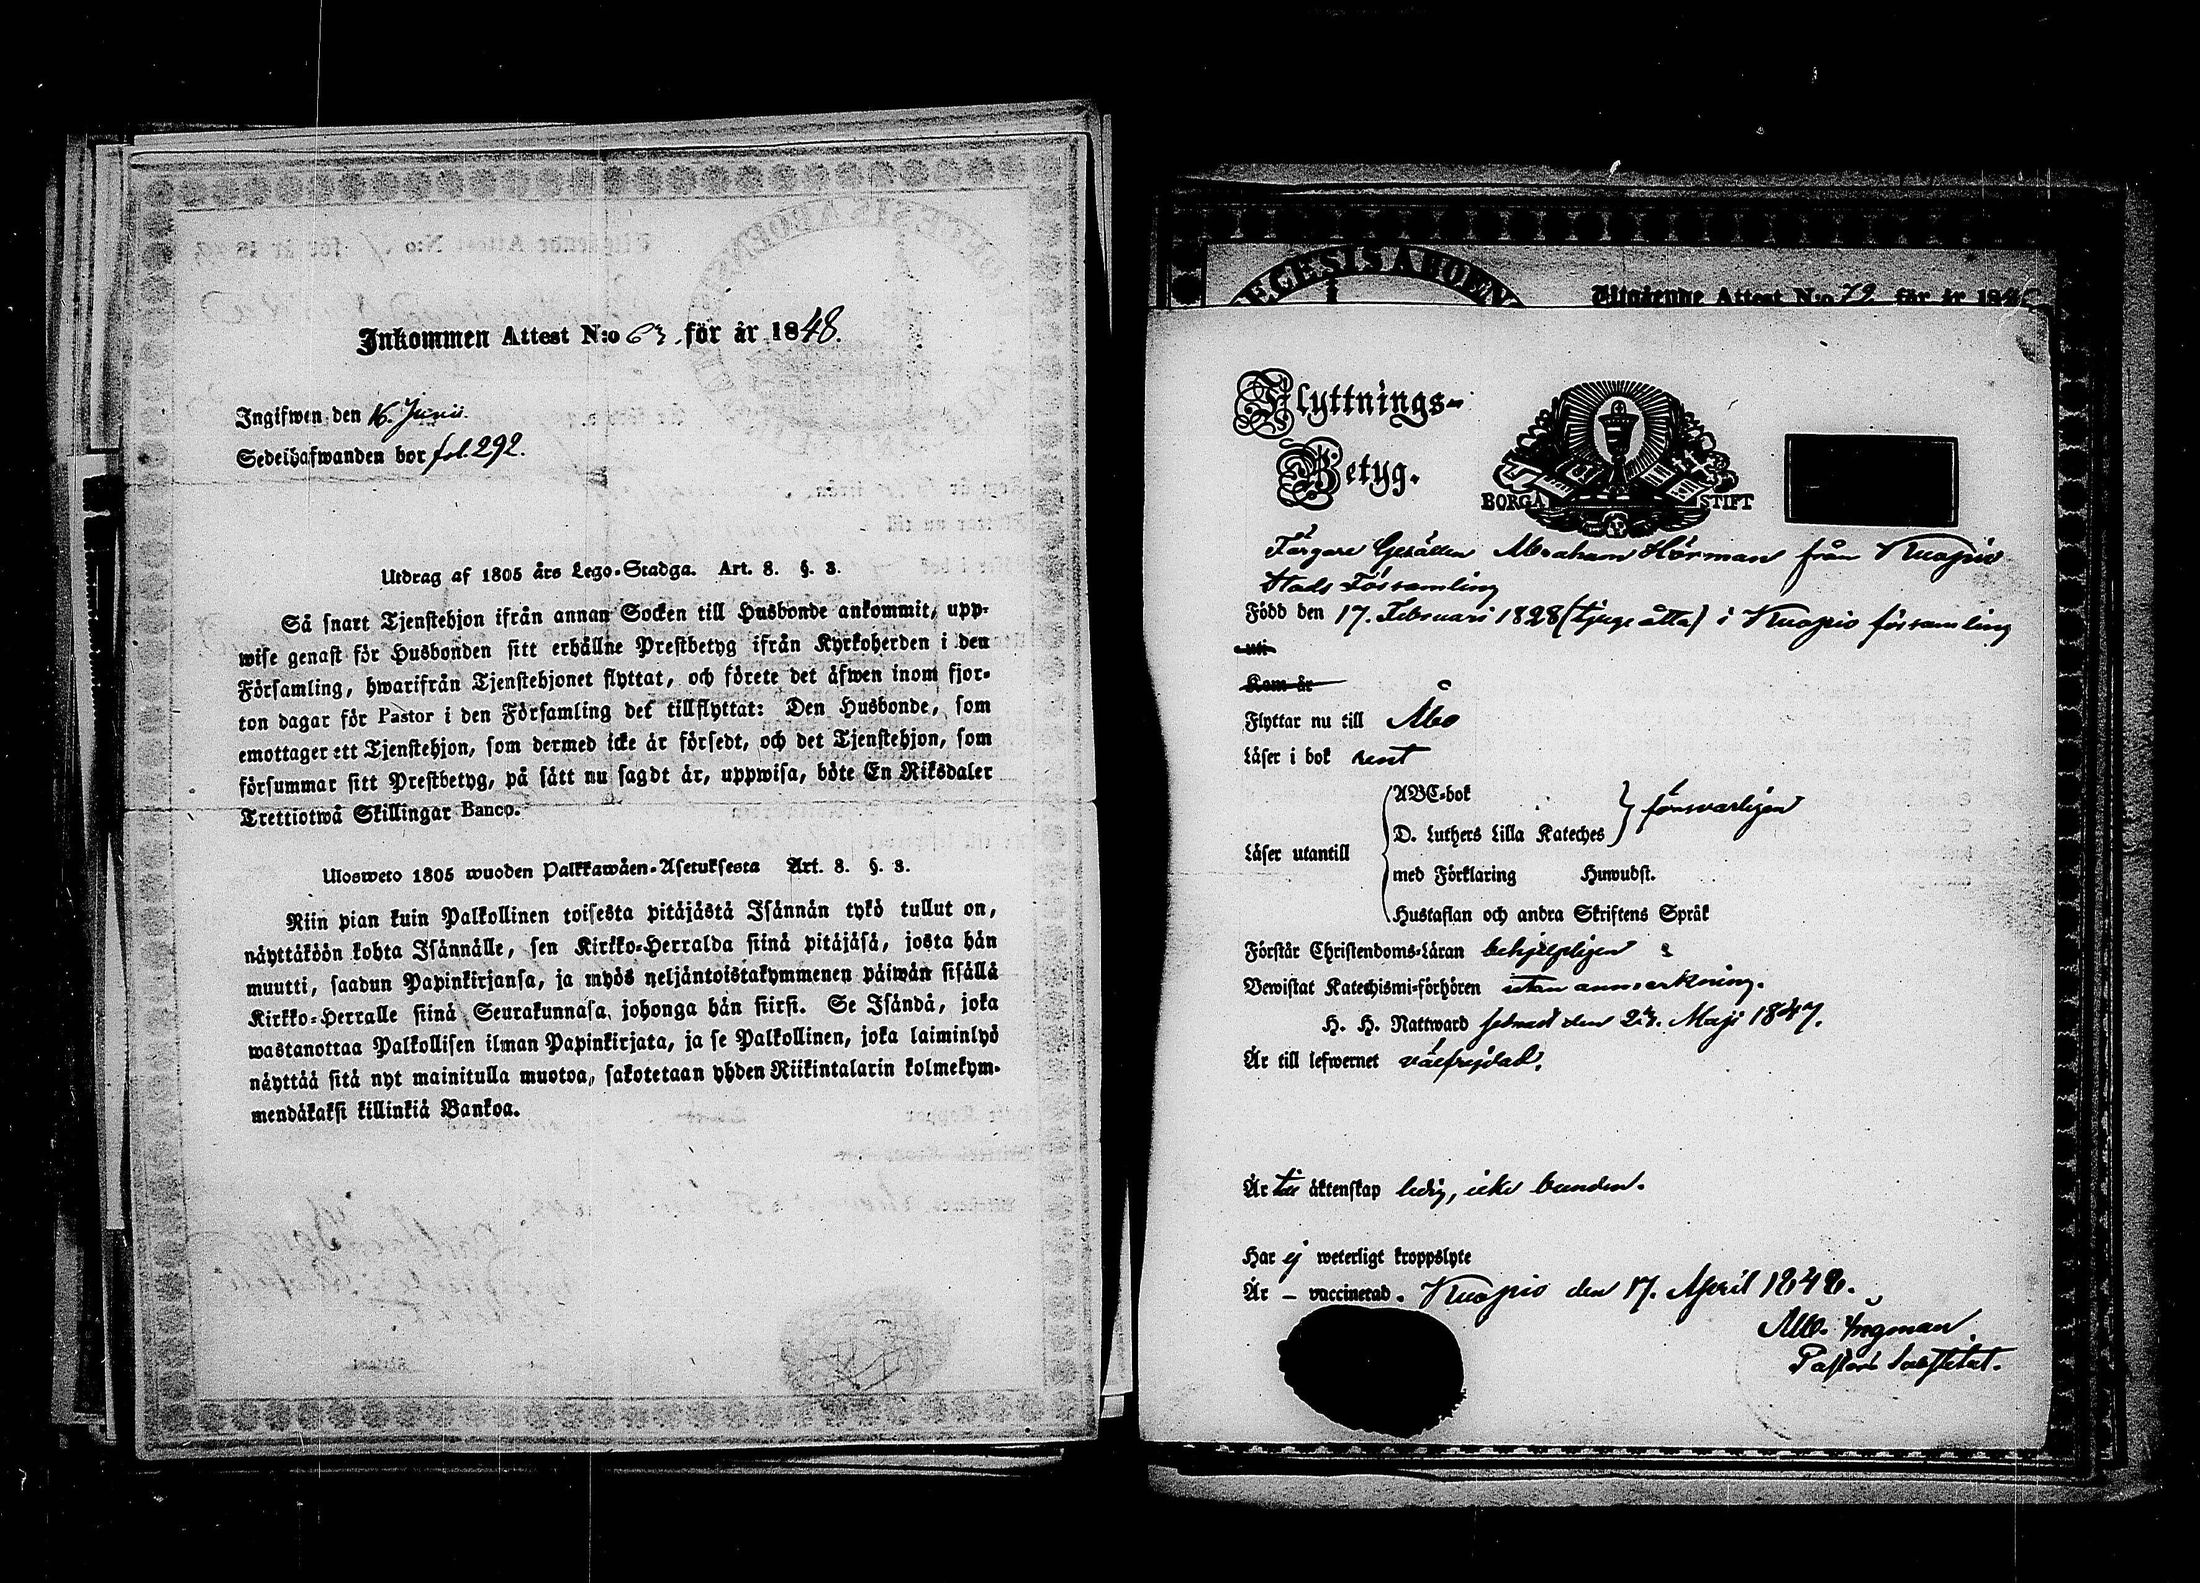 Inkommen Attest N:o 63. för år 1848.
Ingifwen den 16. Junii.
Sedelhafwanden bor fol. 292.
Utdrag af 1805 års Lego-Stadga. Art. 8. §. 3.
Så snart Tjenstehjon ifrån annan Socken till Husbonde ankommit, upp-
wise genast för Husbonden sitt erhållne Prestbetyg ifrån Kyrkoherden i den
Församling, hwarifrån Tjenstehjonet flyttat, och förete det äfwen inom fjor-
ton dagar för Pastor i den Församling det tillflyttat: Den Husbonde, som
emottager ett Tjenstehjon, som dermed icke är försedt, och det Tjenstehjon, som
försummar sitt Prestbetyg, på sätt nu sagdt är, uppwisa, böte En Riksdaler
Trettiotwå Skillingar Banco.
Ulosweto 1805 wuoden Palkkawäen-Asetuksesta Art. 8. §. 3.
Niin pian kuin Palkollinen toisesta pitäjästä Isännän tykö tullut on,
näyttäköön kohta Isännälle, sen Kirkko-Herralda siinä pitäjäsä, josta hän
muutti, saadun Papinkirjansa, ja myös neljäntoistakymmenen päiwän sisällä
Kirkko-Herralle siinä Seurakunnasa, johonga hän siirsi. Se Isändä, joka
wastanottaa Palkollisen ilman Papinkirjata, ja se Palkollinen, joka laiminlyö
näyttää sitä nyt mainitulla muotoa, sakotetaan yhden Riikintalarin kolmekym-
mendäkaksi killinkiä Bankoa.
ECESIS ABOEN
Utgående Attest N:o 79 för år 184
Flyttnings-
Betyg.
BORGÅ STIFT
Färgare Gesällen Abraham Hörman från Kuopio
Stads Församling
Född den 17. Februari 1828 (tjuge åtta) i Kuopio församling
uti
Kom år
Flyttar nu till Åbo
Läser i bok rent
Läser utantill
ABC-bok
D. Luthers Lilla Kateches
försvarligen
med Förklaring Huwudst.
Hustaflan och andra Skriftens Språk
Förstår Christendoms-Läran behjelpligen
Bewistat Katechismi-förhören utan anmärkning.
H. H. Nattward senast den 24. Maji 1847.
Är till lefwernet välfrejdad.
Är till äktenskap ledig, icke bunden.
Har ej weterligt kroppslyte
Är – vaccinerad. Kuopio den 17. April 1848.
Alb. Ingman
Pastors Substitut.